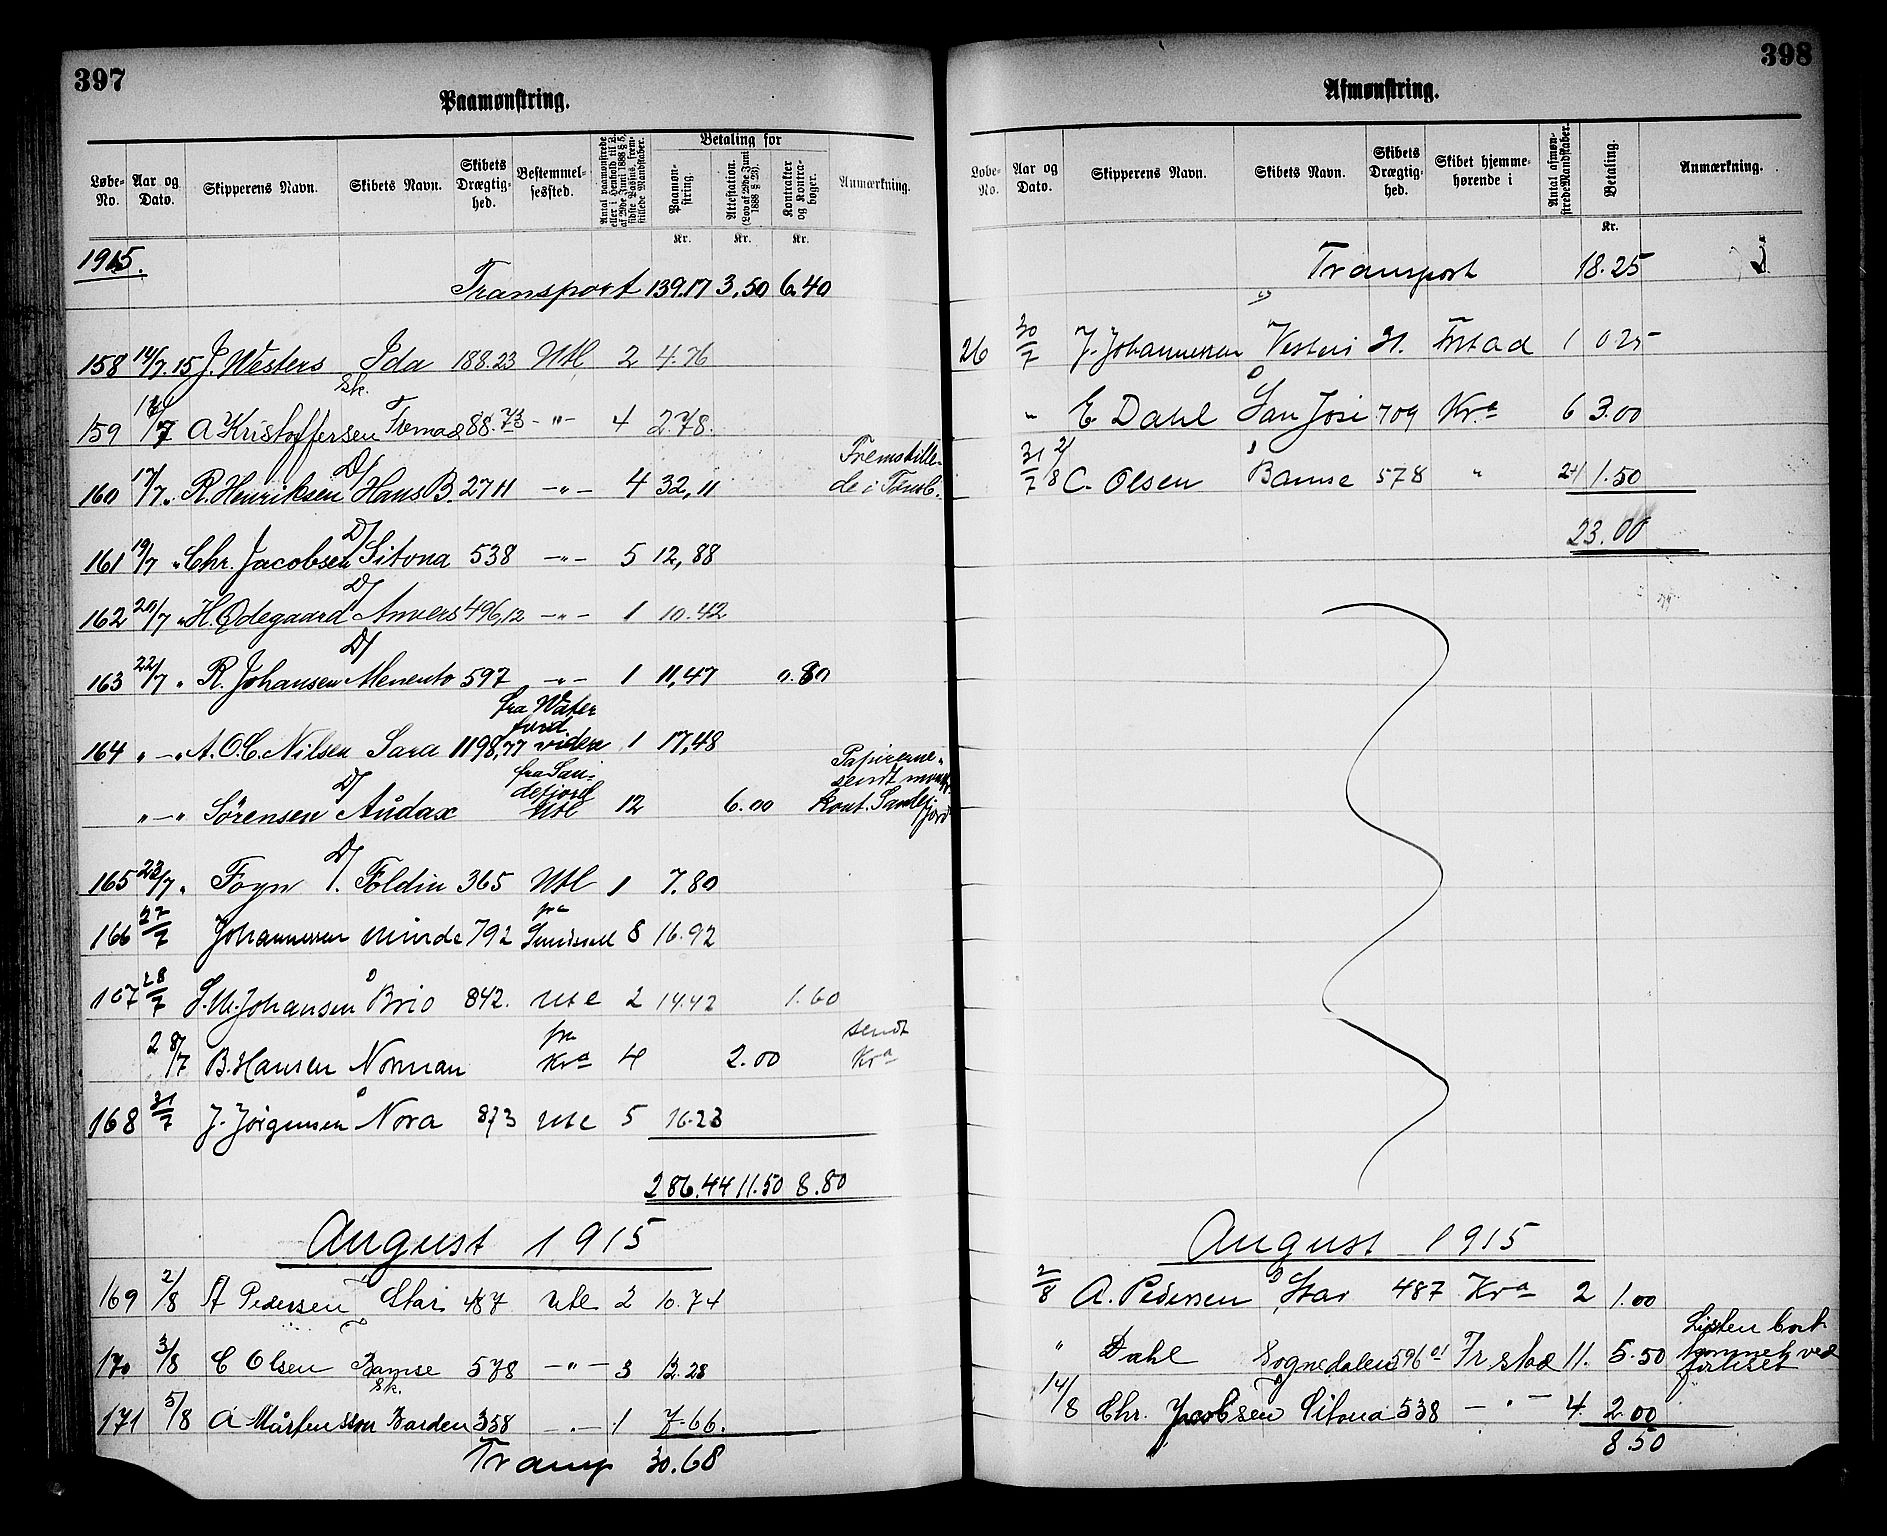 397
Paamønstring.
Løbe-No. Aar og Dato. Skipperens Navn. Skibets Navn. Skibets Drægtighed. Bestemmelsessted. Betaling for Paamønstring. Attestation. (Lov af 29de Juni 1888 § 23). Kontrakter og Kontrabøger. Anmærkning.
Kr. Kr. Kr.
1915.
Transport 139.17 3,50 6.40
158 14/7.15 J. Westers Ida 188.23 Utl 2 4.76
Sk.
159 /7 A Kristoffersen 88.73 -"- 4 2.78.
160 17/7 " R. Henriksen D/ Hans B. 2711 -"- 4 32,11 Fremstille-
de i Tønsb.
161 19/7 " Chr. Jacobsen D/ Sitona 538 -"- 5 12,88
162 20/7 " H. Ødegaard D/ Anvers 496,12 -"- 1 10.42
163 22/7 " R. Johansen D/ Memento 597 -"- 1 11,47 0.80
fra Water
ford
164 " - " A.O.C. Nilsen Sara 1198,77 videre 1 17,48
fra San-
defjord
" - " Sørensen D/ Audax Utl 12 6.00 Papirerne
sendt mønst.
kont. Sandef
jord
165 23/7 " Foyn D/ Foldin 365 Utl 1 7.80
166 27/7 Johannessen Minde 792 fra 8 16.92
167 28/7 S.M. Johansen Brio 842. Utl 2 14.42 1.60
28/7 B. Hansen Norman fra Kra 4 2.00 sendt
Kra
168 31/7 J. Jørgensen Nora 873 Utl 5 16.23
286.44 11.50 8.80
August 1915
169 2/8 A Pedersen Star 487 Utl 2 10.74
170 3/8 C Olsen Bamse 578 -"- 3 12.28
Sk.
171 5/8 A Mårtensson Barden 358 -"- 1 7.66.
Transp 30.68
398
Afmønstring.
Løbe-No. Aar og Dato. Skipperens Navn. Skibets Navn. Skibets Drægtighed. Skibet hjemmehørende i Antal afmønstrede Mandskaber. Betaling. Anmærkning.
Kr.
Transport 18.25
26 30/7 J. Johannessen 31. Frstad 1 0 25
" E Dahl San José 709 Kra 6 3.00
31/7 2/8 C. Olsen Bamse 578 " 1.50
23.00
August 1915
2/8 A. Pedersen Star 487 Kra 2 1.00
" Dahl Sognedalen 596 01 Fr stad 11. 5.50 Listen bort-
kommet ved
forliset
14/8 Chr. Jacobsen Sitona 538 - " - 4. 2.00
8 50